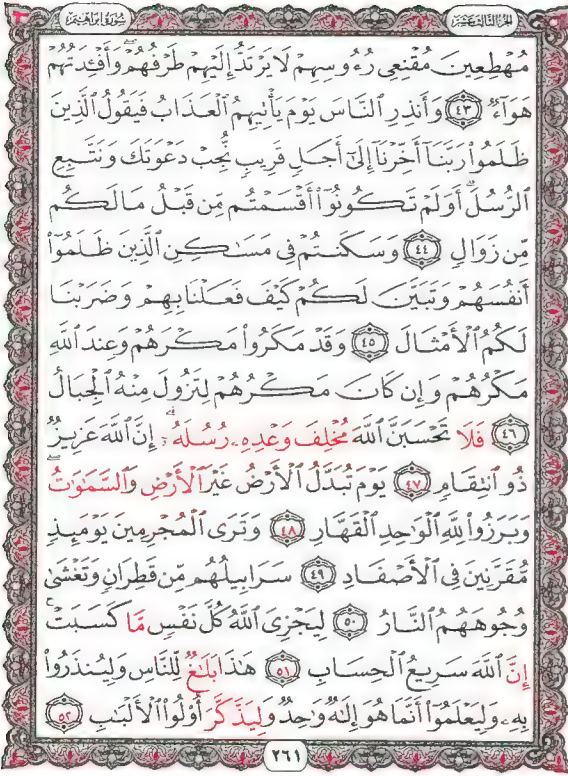 سورة إبراهيم
الجزء الثالث عشر
مُهْطِعِينَ مُقْنِعِى رُءُوسِهِمْ لَا يَرْتَدُّ إِلَيْهِمْ طَرْفُهُمْ وَأَفْـِٔدَتُهُمْ
هَوَآءٌ ٤٣ وَأَنذِرِ ٱلنَّاسَ يَوْمَ يَأْتِيهِمُ ٱلْعَذَابُ فَيَقُولُ ٱلَّذِينَ
ظَلَمُوا۟ رَبَّنَآ أَخِّرْنَآ إِلَىٰٓ أَجَلٍ قَرِيبٍ نُّجِبْ دَعْوَتَكَ وَنَتَّبِعِ
ٱلرُّسُلَ ۗ أَوَلَمْ تَكُونُوٓا۟ أَقْسَمْتُم مِّن قَبْلُ مَا لَكُم
مِّن زَوَالٍ ٤٤ وَسَكَنتُمْ فِى مَسَـٰكِنِ ٱلَّذِينَ ظَلَمُوٓا۟
أَنفُسَهُمْ وَتَبَيَّنَ لَكُمْ كَيْفَ فَعَلْنَا بِهِمْ وَضَرَبْنَا
لَكُمُ ٱلْأَمْثَالَ ٤٥ وَقَدْ مَكَرُوا۟ مَكْرَهُمْ وَعِندَ ٱللَّهِ
مَكْرُهُمْ وَإِن كَانَ مَكْرُهُمْ لِتَزُولَ مِنْهُ ٱلْجِبَالُ
٤٦ فَلَا تَحْسَبَنَّ ٱللَّهَ مُخْلِفَ وَعْدِهِۦ رُسُلَهُۥٓ ۗ إِنَّ ٱللَّهَ عَزِيزٌ
ذُو ٱنتِقَامٍ ٤٧ يَوْمَ تُبَدَّلُ ٱلْأَرْضُ غَيْرَ ٱلْأَرْضِ وَٱلسَّمَـٰوَٰتُ ۖ
وَبَرَزُوا۟ لِلَّهِ ٱلْوَٰحِدِ ٱلْقَهَّارِ ٤٨ وَتَرَى ٱلْمُجْرِمِينَ يَوْمَئِذٍ
مُّقَرَّنِينَ فِى ٱلْأَصْفَادِ ٤٩ سَرَابِيلُهُم مِّن قَطِرَانٍ وَتَغْشَىٰ
وُجُوهَهُمُ ٱلنَّارُ ٥٠ لِيَجْزِىَ ٱللَّهُ كُلَّ نَفْسٍ مَّا كَسَبَتْ ۚ
إِنَّ ٱللَّهَ سَرِيعُ ٱلْحِسَابِ ٥١ هَـٰذَا بَلَـٰغٌ لِّلنَّاسِ وَلِيُنذَرُوا۟
بِهِۦ وَلِيَعْلَمُوٓا۟ أَنَّمَا هُوَ إِلَـٰهٌ وَٰحِدٌ وَلِيَذَّكَّرَ أُو۟لُوا۟ ٱلْأَلْبَـٰبِ ٥٢
٢٦١